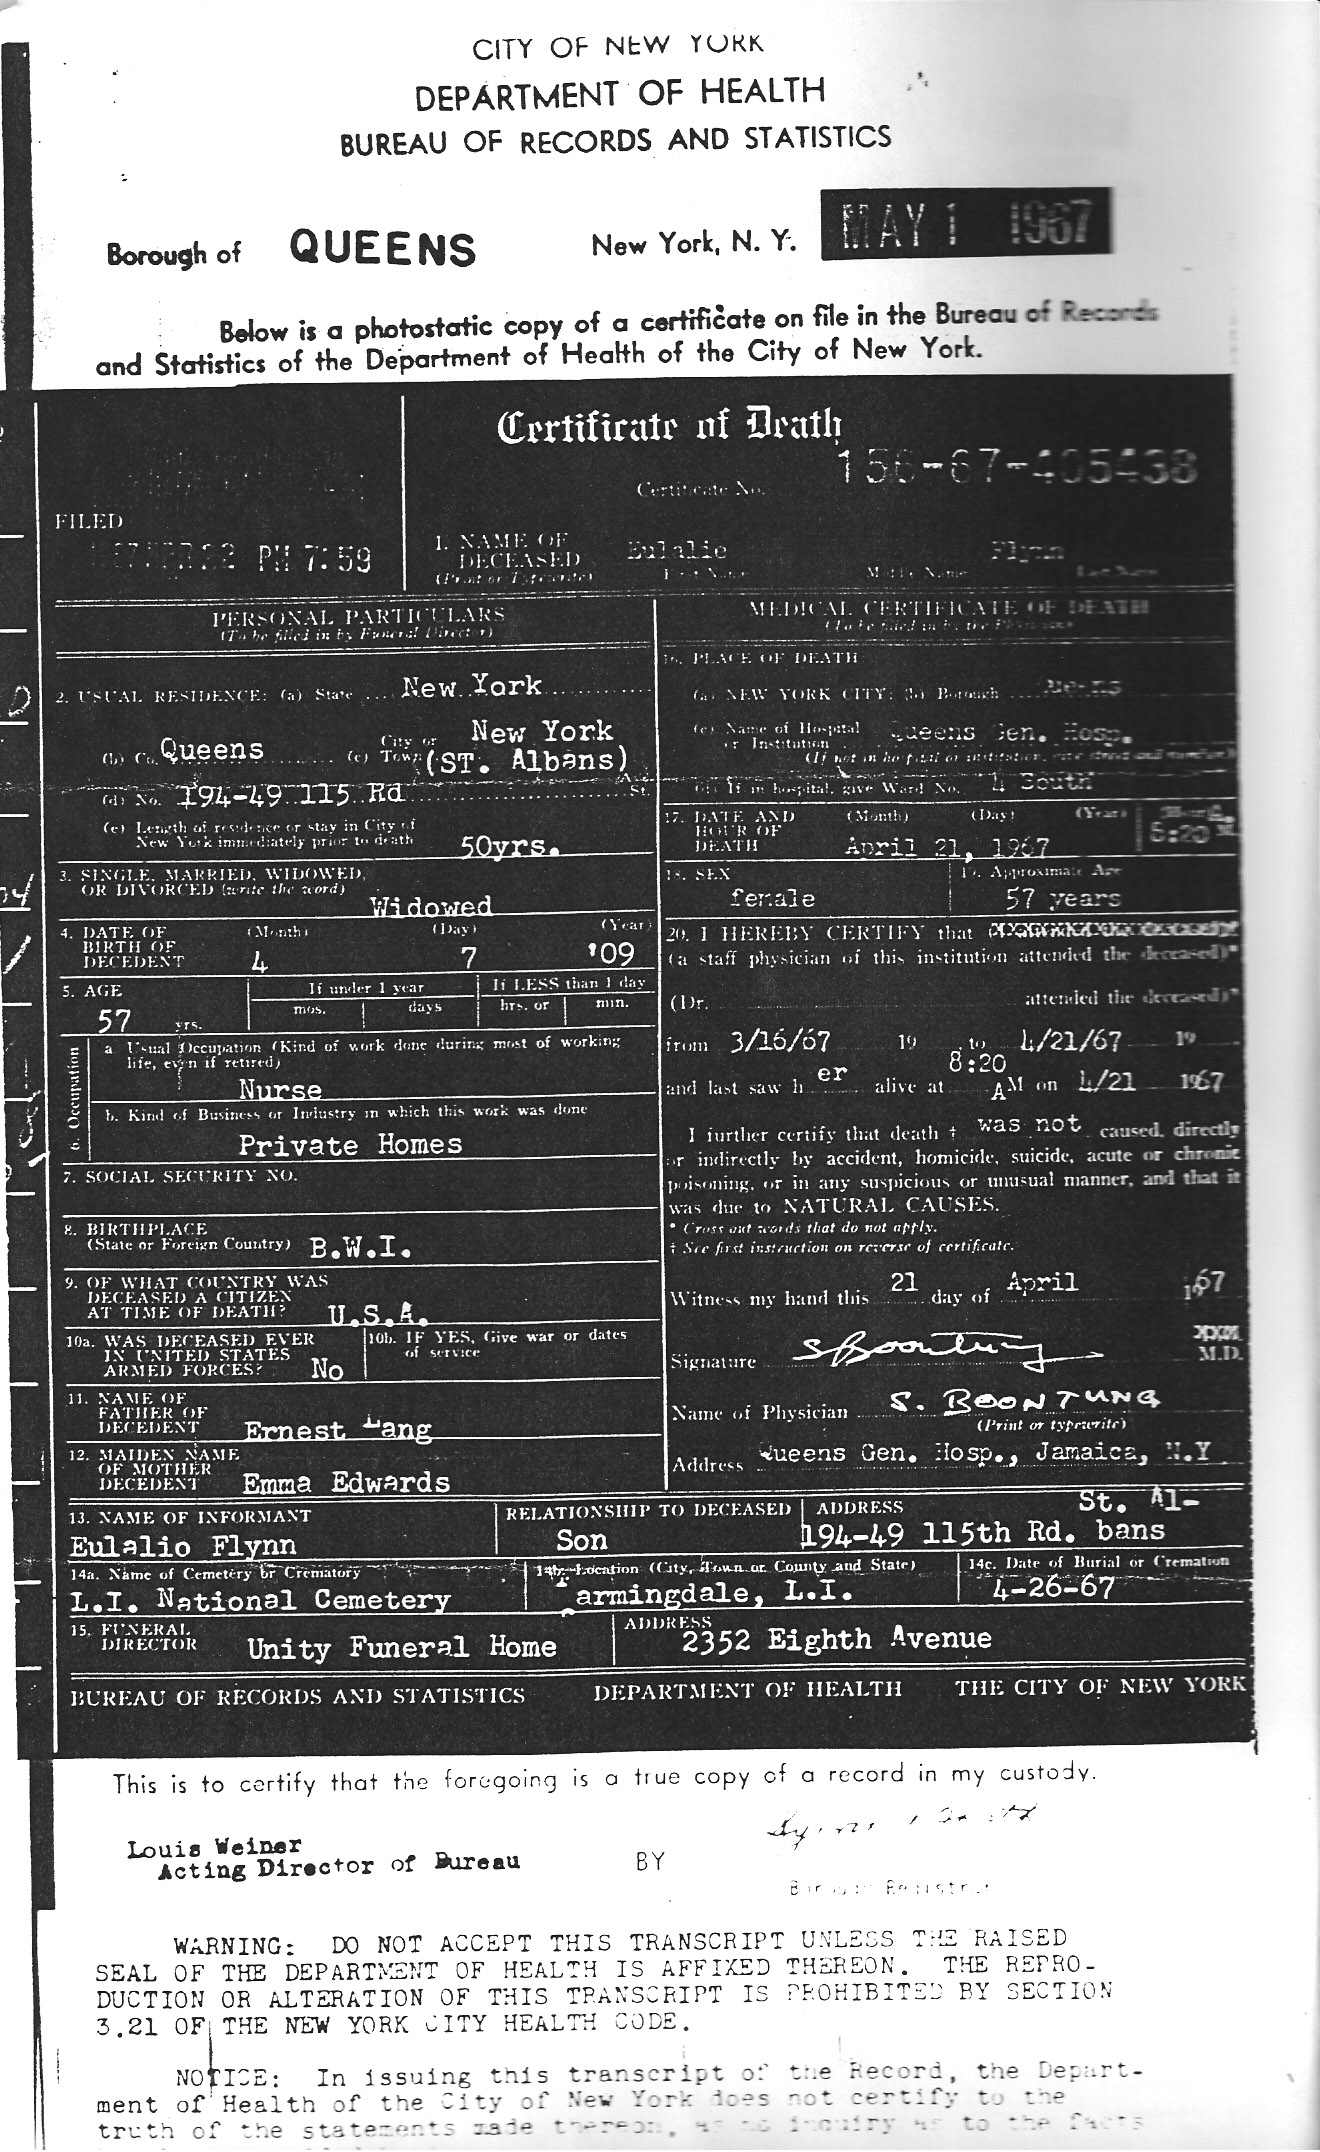 CITY OF NEW YORK
DEPARTMENT OF HEALTH
BUREAU OF RECORDS AND STATISTICS
Borough of QUEENS New York, N. Y. MAY 1 1967
Below is a photostatic copy of a certificate on file in the Bureau of Records
and Statistics of the Department of Health of the City of New York.
Certificate of Death
Certificate No. 156-67-405438
FILED
PM 7:59
1. NAME OF DECEASED (Print or Typewrite) Eulalie Flynn
First Name Middle Name Last Name
PERSONAL PARTICULARS
(To be filled in by Funeral Director)
2. USUAL RESIDENCE: (a) State New York
(b) Co. Queens (c) City or Town New York (ST. Albans)
(d) No. 194-49 115 Rd St.
(e) Length of residence or stay in City of
New York immediately prior to death 50yrs.
3. SINGLE, MARRIED, WIDOWED,
OR DIVORCED (write the word) Widowed
4. DATE OF BIRTH OF DECEDENT (Month) 4 (Day) 7 (Year) '09
5. AGE 57 yrs. If under 1 year mos. days If LESS than 1 day hrs. or min.
6. Occupation
a Usual Occupation (Kind of work done during most of working
life, even if retired)
Nurse
b. Kind of Business or Industry in which this work was done
Private Homes
7. SOCIAL SECURITY NO.
8. BIRTHPLACE
(State or Foreign Country) B.W.I.
9. OF WHAT COUNTRY WAS
DECEASED A CITIZEN
AT TIME OF DEATH? U.S.A.
10a. WAS DECEASED EVER
IN UNITED STATES
ARMED FORCES? No
10b. IF YES, Give war or dates
of service
11. NAME OF
FATHER OF
DECEDENT Ernest
12. MAIDEN NAME
OF MOTHER
DECEDENT Emma Edwards
MEDICAL CERTIFICATE OF DEATH
(To be filled in by the Physician)
16. PLACE OF DEATH
(a) NEW YORK CITY: (b) Borough Queens
(c) Name of Hospital
or Institution Queens Gen. Hosp.
(If not in hospital or institution, give street and number)
(d) If in hospital, give Ward No. 4 South
17. DATE AND
HOUR OF
DEATH (Month) (Day) (Year) April 21, 1967 8:20 M.
18. SEX female
19. Approximate Age 57 years
20. I HEREBY CERTIFY that
(a staff physician of this institution attended the deceased)*
(Dr. attended the deceased)*
from 3/16/67 19 to 4/21/67 19
and last saw her alive at 8:20 AM on 4/21 1967
I further certify that death † was not caused, directly
or indirectly by accident, homicide, suicide, acute or chronic
poisoning, or in any suspicious or unusual manner, and that it
was due to NATURAL CAUSES.
* Cross out words that do not apply.
† See first instruction on reverse of certificate.
Witness my hand this 21 day of April 1967
Signature S Boontung M.D.
Name of Physician S. BOONTUNG
(Print or typewrite)
Address Queens Gen. Hosp., Jamaica, N.Y
13. NAME OF INFORMANT RELATIONSHIP TO DECEASED ADDRESS St. Al-
Eulalio Flynn Son 194-49 115th Rd. bans
14a. Name of Cemetery or Crematory 14b. Location (City, Town or County and State) 14c. Date of Burial or Cremation
L.I. National Cemetery Farmingdale, L.I. 4-26-67
15. FUNERAL
DIRECTOR Unity Funeral Home ADDRESS 2352 Eighth Avenue
BUREAU OF RECORDS AND STATISTICS DEPARTMENT OF HEALTH THE CITY OF NEW YORK
This is to certify that the foregoing is a true copy of a record in my custody.
Louis Weiner
Acting Director of Bureau BY
WARNING: DO NOT ACCEPT THIS TRANSCRIPT UNLESS THE RAISED
SEAL OF THE DEPARTMENT OF HEALTH IS AFFIXED THEREON. THE REPRO-
DUCTION OR ALTERATION OF THIS TRANSCRIPT IS PROHIBITED BY SECTION
3.21 OF THE NEW YORK CITY HEALTH CODE.
NOTICE: In issuing this transcript of the Record, the Depart-
ment of Health of the City of New York does not certify to the
truth of the statements made thereon, as no inquiry as to the facts